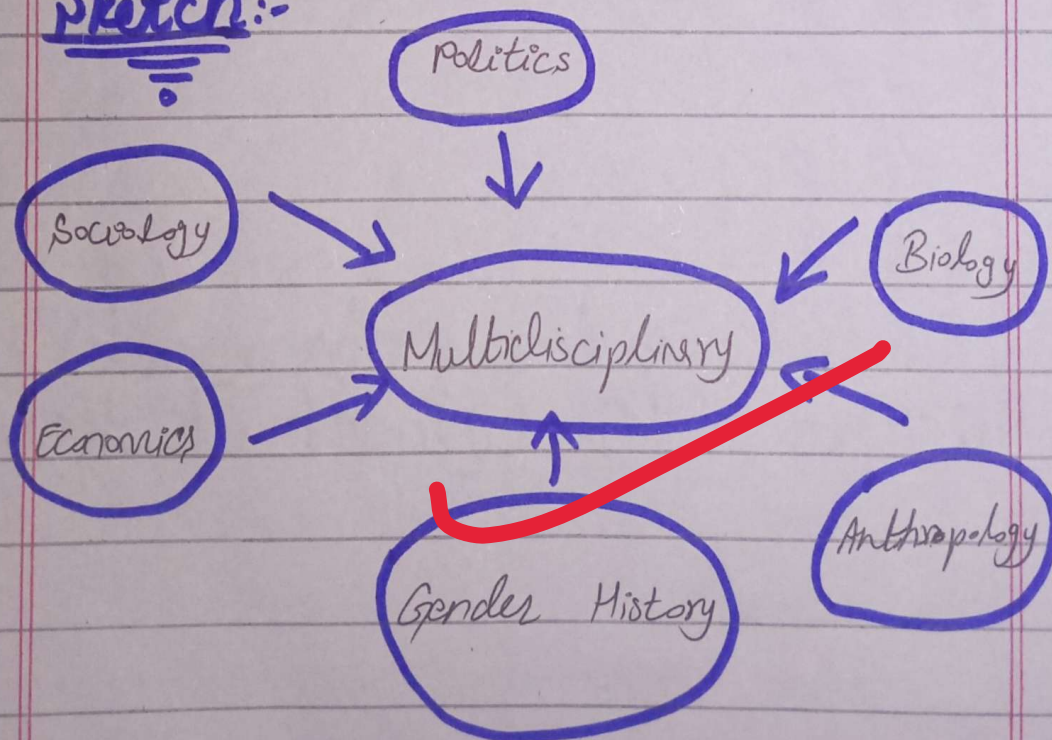 Sketch:-
Politics
Sociology
Biology
Multidisciplinary
Economics
Anthropology
Gender History